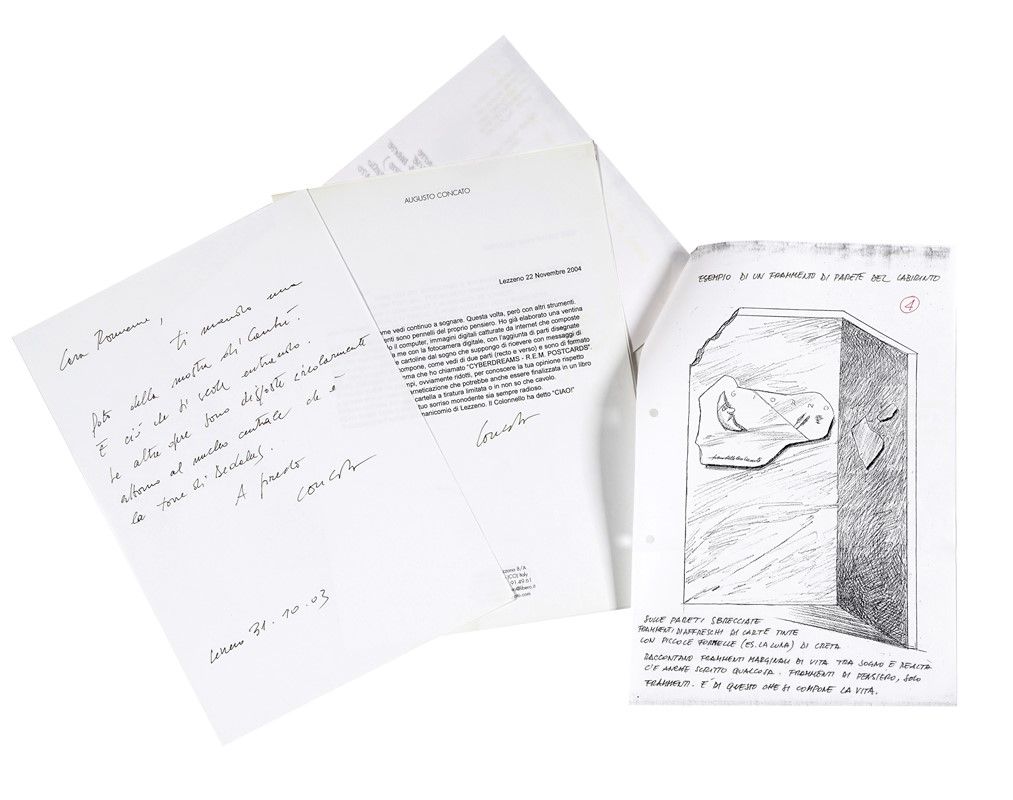 Cara Romana,
ti mando una
foto della mostra di Cantù.
È ciò che si vede entrando.
Le altre opere sono disposte circolarmente
attorno al nucleo centrale che è
la torre di Dedalus.
A presto
Concato
31.10.03
AUGUSTO CONCATO
Lezzeno 22 Novembre 2004
me vedi continuo a sognare. Questa volta, però con altri strumenti.
enti sono pennelli del proprio pensiero. Ho già elaborato una ventina
il computer, immagini digitali catturate da internet che composte
me con la fotocamera digitale, con l'aggiunta di parti disegnate
cartoline dal sogno che suppongo di ricevere con messaggi di
compone, come vedi di due parti (recto e verso) e sono di formato
mma che ho chiamato "CYBERDREAMS - R.E.M. POSTCARDS".
mpi, ovviamente ridotti, per conoscere la tua opinione rispetto
meticazione che potrebbe anche essere finalizzata in un libro
cartella a tiratura limitata o in non so che cavolo.
tuo sorriso monodente sia sempre radioso.
manicomio di Lezzeno. Il Colonnello ha detto "CIAO!"
Concato
zzeno 8/A
(CO) Italy
91.49.61
@libero.it
ESEMPIO DI UN FRAMMENTO DI PARETE DEL LABIRINTO
4
GIORNO
SULLE PARETI SBRECCIATE
FRAMMENTI DI AFFRESCHI DI CARTE TINTE
CON PICCOLE FORMELLE (ES. LA LUNA) DI CRETA
RACCONTANO FRAMMENTI MARGINALI DI VITA TRA SOGNO E REALTÀ
C'È ANCHE SCRITTO QUALCOSA. FRAMMENTI DI PENSIERO, SOLO
FRAMMENTI. È DI QUESTO CHE SI COMPONE LA VITA.